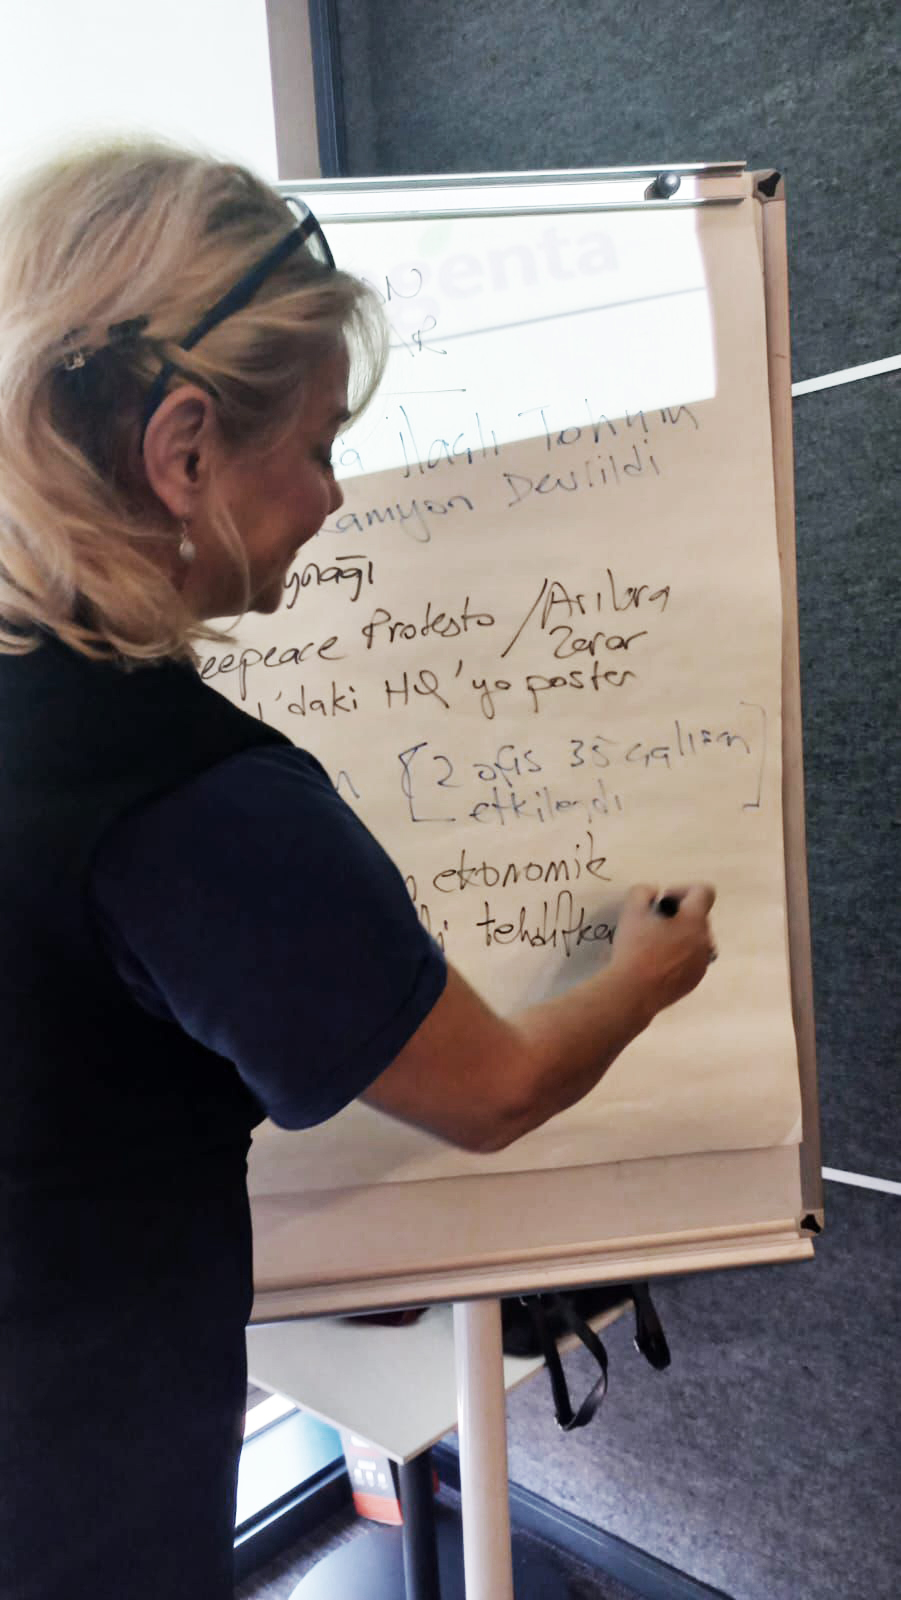 genta
AN
AR
İlaçlı Tohum
Kamyon Devrildi
ynağı
eepeace Protesto / Arılara
Zarar
'daki HQ'ya poster
n [2 ofis 35 çalışan
etkilendi]
ekonomik
i tehditkar